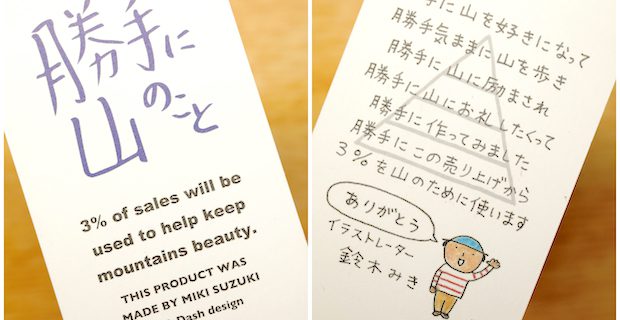 勝手に
山のこと
3% of sales will be
used to help keep
mountains beauty.
THIS PRODUCT WAS
MADE BY MIKI SUZUKI
Dash design
手に山を好きになって
勝手気ままに山を歩き
勝手に山に励まされ
勝手に山にお礼したくって
勝手に作ってみました
勝手にこの売り上げから
3%を山のために使います
ありがとう
イラストレーター
鈴木みき